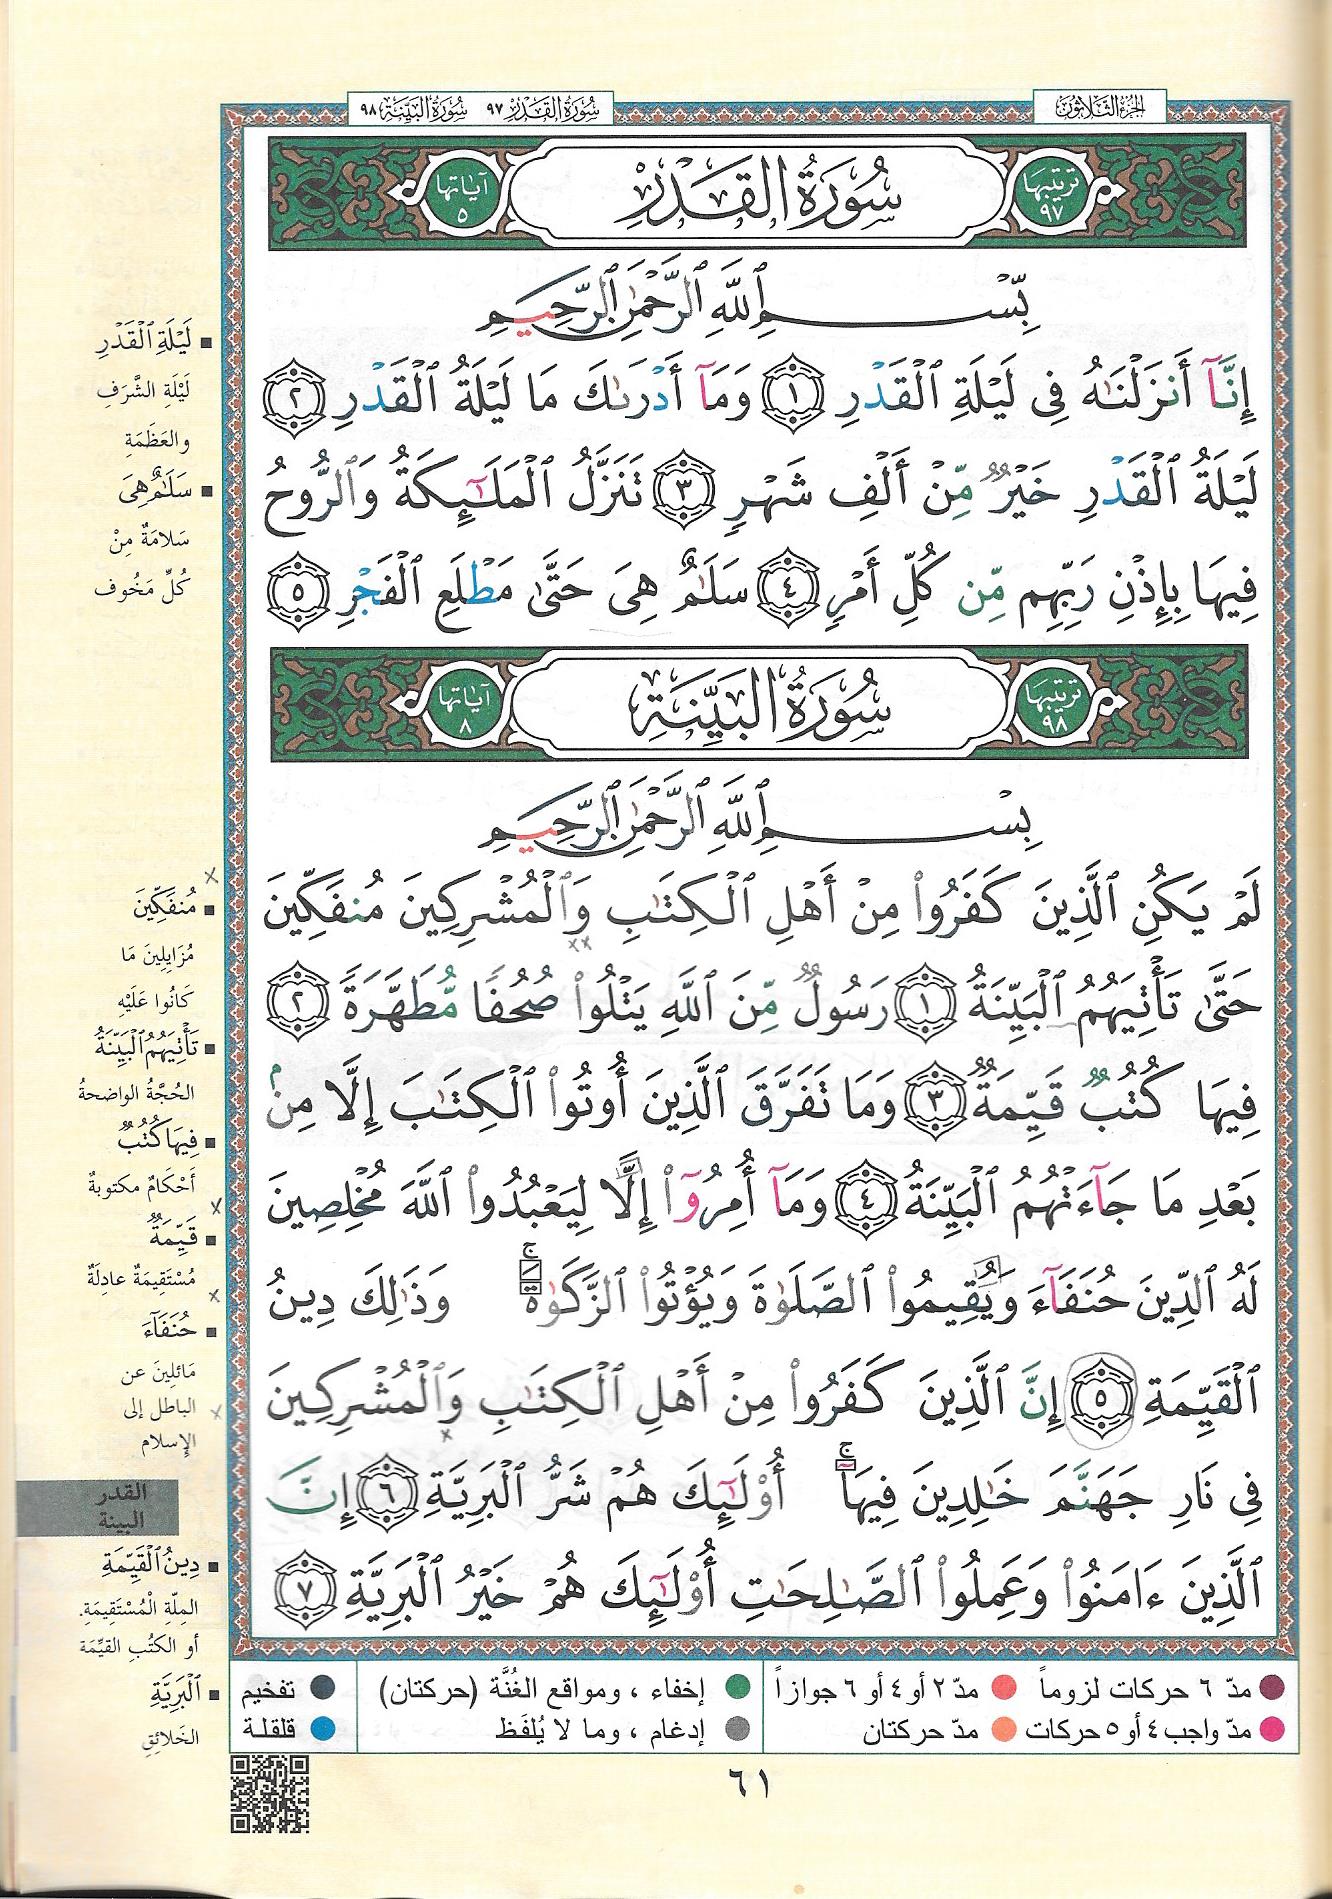 الجزء الثلاثون
سورة القدر ٩٧ سورة البينة ٩٨
ترتيبها ٩٧
سُورَةُ القَدْرِ
آياتها ٥
بِّسْمِ ٱللَّهِ ٱلرَّحْمَٰنِ ٱلرَّحِيمِ
إِنَّآ أَنزَلْنَٰهُ فِى لَيْلَةِ ٱلْقَدْرِ ١ وَمَآ أَدْرَىٰكَ مَا لَيْلَةُ ٱلْقَدْرِ ٢
لَيْلَةُ ٱلْقَدْرِ خَيْرٌ مِّنْ أَلْفِ شَهْرٍ ٣ تَنَزَّلُ ٱلْمَلَٰٓئِكَةُ وَٱلرُّوحُ
فِيهَا بِإِذْنِ رَبِّهِم مِّن كُلِّ أَمْرٍ ٤ سَلَٰمٌ هِىَ حَتَّىٰ مَطْلَعِ ٱلْفَجْرِ ٥
ترتيبها ٩٨
سُورَةُ البَيِّنَةِ
آياتها ٨
بِسْمِ ٱللَّهِ ٱلرَّحْمَٰنِ ٱلرَّحِيمِ
لَمْ يَكُنِ ٱلَّذِينَ كَفَرُوا۟ مِنْ أَهْلِ ٱلْكِتَٰبِ وَٱلْمُشْرِكِينَ مُنفَكِّينَ
حَتَّىٰ تَأْتِيَهُمُ ٱلْبَيِّنَةُ ١ رَسُولٌ مِّنَ ٱللَّهِ يَتْلُوا۟ صُحُفًا مُّطَهَّرَةً ٢
فِيهَا كُتُبٌ قَيِّمَةٌ ٣ وَمَا تَفَرَّقَ ٱلَّذِينَ أُوتُوا۟ ٱلْكِتَٰبَ إِلَّا مِنۢ
بَعْدِ مَا جَآءَتْهُمُ ٱلْبَيِّنَةُ ٤ وَمَآ أُمِرُوٓا۟ إِلَّا لِيَعْبُدُوا۟ ٱللَّهَ مُخْلِصِينَ
لَهُ ٱلدِّينَ حُنَفَآءَ وَيُقِيمُوا۟ ٱلصَّلَوٰةَ وَيُؤْتُوا۟ ٱلزَّكَوٰةَ ۚ وَذَٰلِكَ دِينُ
ٱلْقَيِّمَةِ ٥ إِنَّ ٱلَّذِينَ كَفَرُوا۟ مِنْ أَهْلِ ٱلْكِتَٰبِ وَٱلْمُشْرِكِينَ
فِى نَارِ جَهَنَّمَ خَٰلِدِينَ فِيهَآ ۚ أُو۟لَٰٓئِكَ هُمْ شَرُّ ٱلْبَرِيَّةِ ٦ إِنَّ
ٱلَّذِينَ ءَامَنُوا۟ وَعَمِلُوا۟ ٱلصَّٰلِحَٰتِ أُو۟لَٰٓئِكَ هُمْ خَيْرُ ٱلْبَرِيَّةِ ٧
لَيْلَةِ ٱلْقَدْرِ
لَيْلَةِ الشَّرَفِ
والعَظَمَةِ
سَلَٰمٌ هِىَ
سَلامَةٌ مِنْ
كُلِّ مَخُوف
مُنفَكِّينَ
مُزَايِلِينَ مَا
كَانُوا عَلَيْهِ
تَأْتِيَهُمُ ٱلْبَيِّنَةُ
الحُجَّةُ الواضحةُ
فِيهَا كُتُبٌ
أَحْكَامٌ مكتوبةٌ
قَيِّمَةٌ
مُسْتَقِيمَةٌ عادِلَةٌ
حُنَفَآءَ
مَائلِينَ عن
الباطل إلى
الإسلام
القدر
البينة
دِينُ ٱلْقَيِّمَةِ
المِلّةِ الْمُسْتَقِيمَةِ.
أو الكتُبِ القيِّمَة
ٱلْبَرِيَّةِ
الخَلائِقِ
مدّ ٦ حركات لزوماً
مدّ ٢ أو ٤ أو ٦ جوازاً
إخفاء ، ومواقع الغُنَّة (حركتان)
تفخيم
مدّ واجب ٤ أو ٥ حركات
مدّ حركتان
إدغام ، وما لا يُلفَظ
قلقلة
٦١